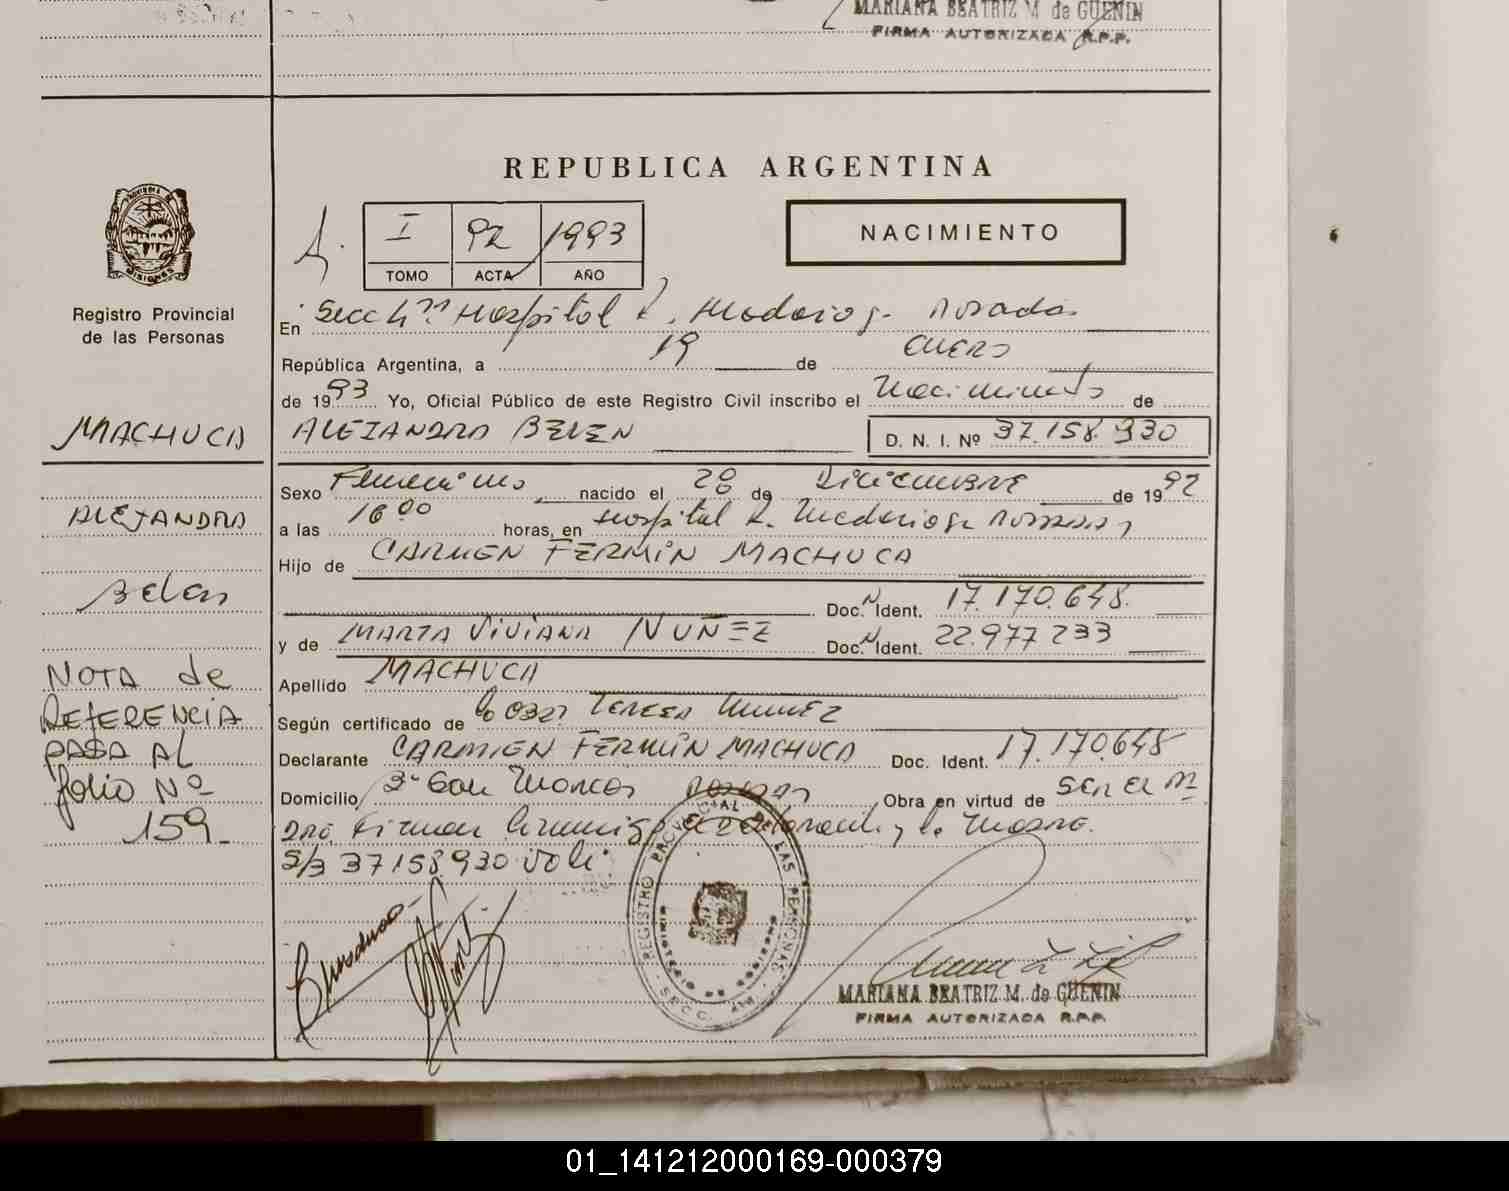 MARIANA BEATRIZ M. de GUENIN
FIRMA AUTORIZADA R.P.P.
REPUBLICA ARGENTINA
I 92 1993
TOMO ACTA AÑO
NACIMIENTO
Registro Provincial
de las Personas
En Secc 4ta Hospital R. Madariaga Posadas
República Argentina, a 19 de ENERO
de 1993 Yo, Oficial Público de este Registro Civil inscribo el Nacimiento de
MACHUCA
ALEJANDRA BELEN D. N. I. Nº 37.158.930
Sexo Femenino nacido el 28 de Diciembre de 1992
ALEJANDRA
a las 16 00 horas, en Hospital R. Madariaga Posadas
Hijo de CARMEN FERMIN MACHUCA
Belen
Doc. N Ident. 17.170.648.
y de MARTA VIVIANA NUÑEZ Doc. N Ident. 22.977 233
NOTA de
REFERENCIA
PASA AL
folio Nº
159
Apellido MACHUCA
Según certificado de
Declarante CARMEN FERMIN MACHUCA Doc. Ident. 17.170.648
Domicilio Obra en virtud de ser el
la madre.
S/B 37158.930 vale
REGISTRO PROVINCIAL DE LAS PERSONAS
MINISTERIO DE GOBIERNO
SECC. 4ta
MARIANA BEATRIZ M. de GUENIN
FIRMA AUTORIZADA R.P.P.
01_141212000169-000379